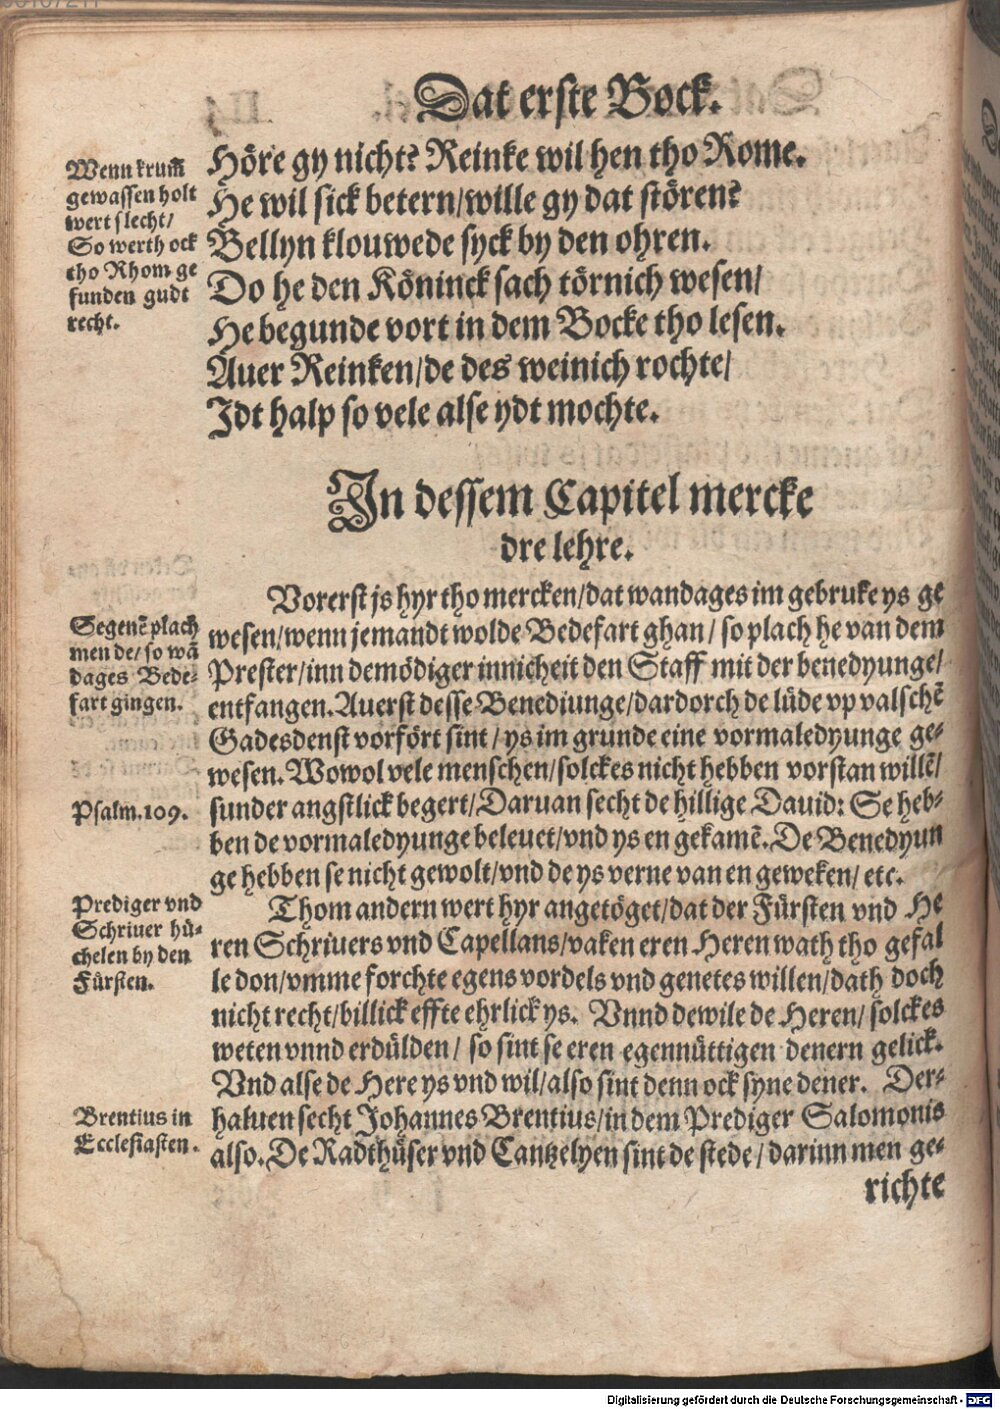 Dat erste Bock.
Höre gy nicht? Reinke wil hen tho Rome.
He wil sick betern/wille gy dat stören?
Bellyn klouwede syck by den ohren.
Do he den Köninck sach törnich wesen/
He begunde vort in dem Bocke tho lesen.
Auer Reinken/de des weinich rochte/
Idt halp so vele alse ydt mochte.
Wenn krum̃
gewassen holt
wert slecht/
So werth ock
tho Rhom ge
funden gudt
recht.
In dessem Capitel mercke
dre lehre.
Vorerst js hyr tho mercken/dat wandages im gebruke ys ge
wesen/wenn jemandt wolde Bedefart ghan/ so plach he van dem
Prester/inn demödiger innicheit den Staff mit der benedyunge/
entfangen. Auerst desse Benediunge/dardorch de lüde vp valschẽ
Gadesdenst vorfört sint/ys im grunde eine vormaledyunge ge-
wesen. Wowol vele menschen/solckes nicht hebben vorstan willẽ/
sunder angstlick begert/Daruan secht de hillige Dauid: Se heb-
ben de vormaledyunge beleuet/vnd ys en gekamẽ. De Benedyun
ge hebben se nicht gewolt/vnd de ys verne van en geweken/ etc.
Segenẽ plach
men de/ so wã
dages Bede-
fart gingen.
Psalm.109.
Thom andern wert hyr angetöget/dat der Fürsten vnd He
ren Schriuers vnd Capellans/vaken eren Heren wath tho gefal
le don/vmme forchte egens vordels vnd genetes willen/dath doch
nicht recht/billick effte ehrlick ys. Vnnd dewile de Heren/ solckes
weten vnnd erdülden/ so sint se eren egennüttigen denern gelick.
Vnd alse de Here ys vnd wil/also sint denn ock syne dener. Der-
haluen secht Johannes Brentius/in dem Prediger Salomonis
also. De Radthüser vnd Cantzelyen sint de stede/darinn men ge-
richte
Prediger vnd
Schriuer hü-
chelen by den
Fürsten.
Brentius in
Ecclesiasten.
Digitalisierung gefördert durch die Deutsche Forschungsgemeinschaft - DFG